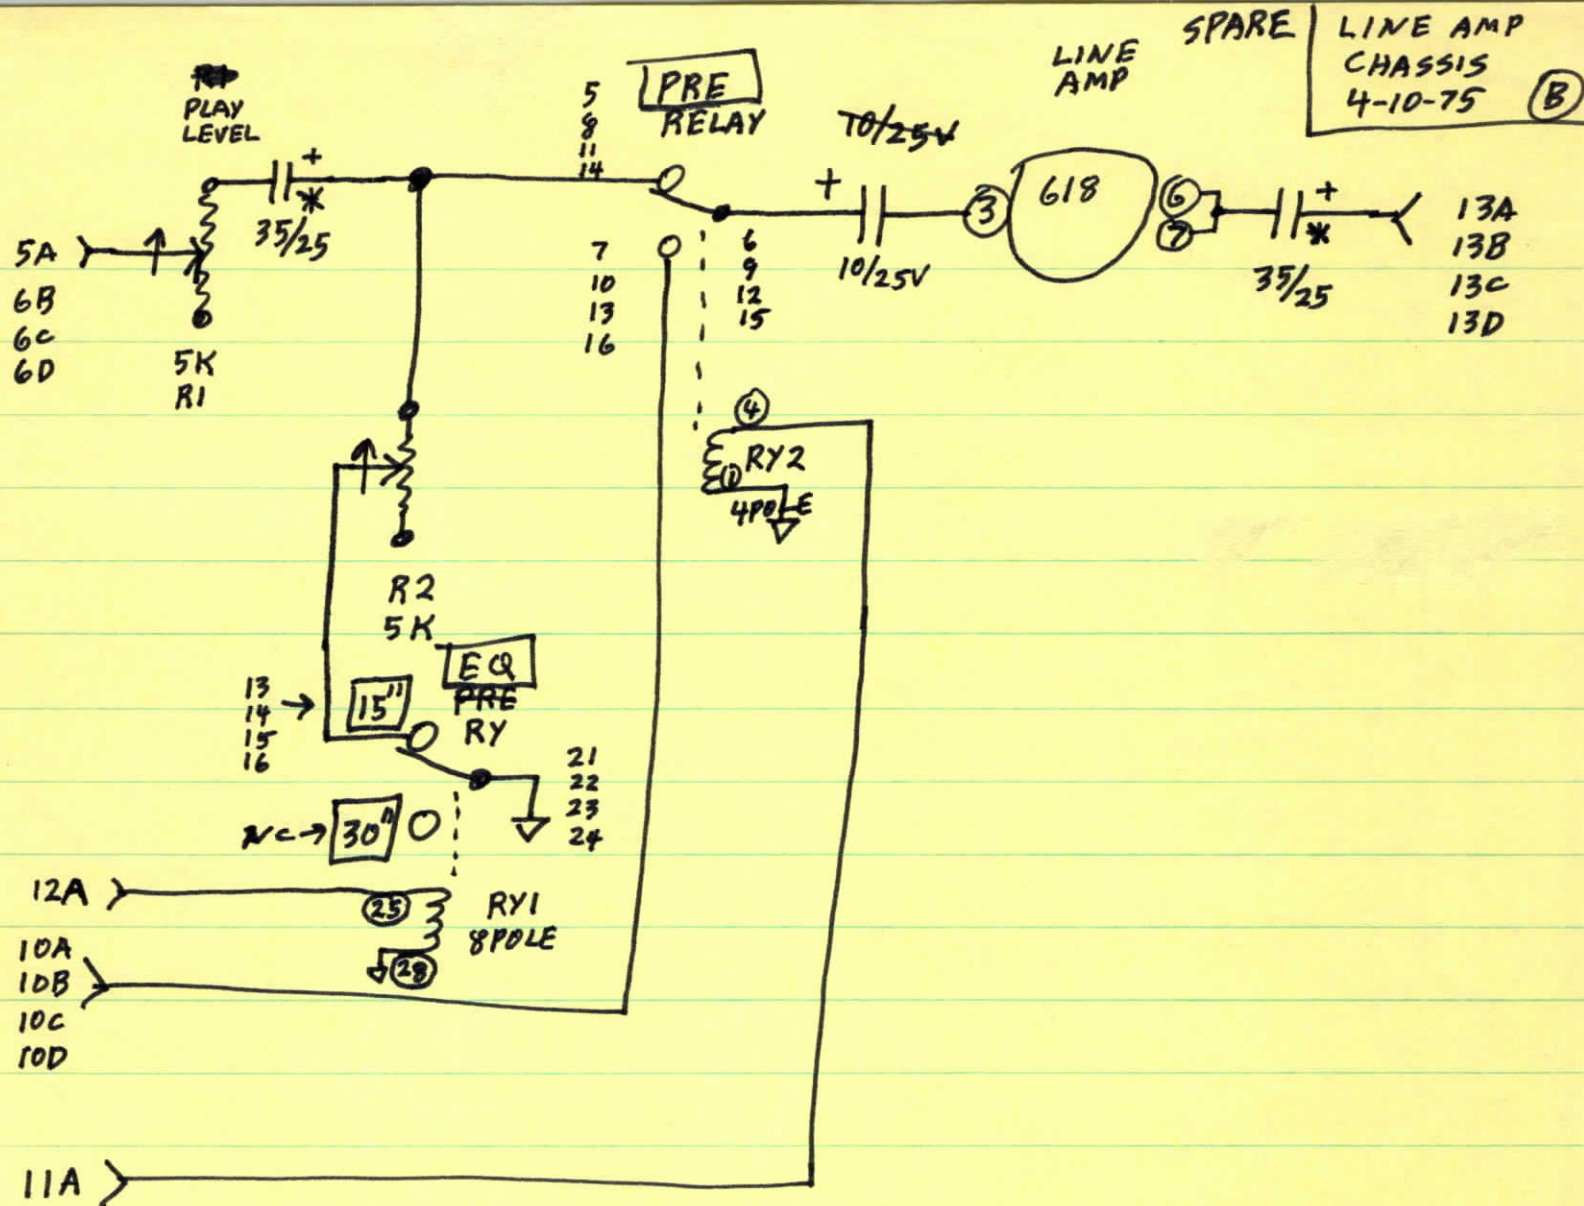 SPARE
LINE AMP
CHASSIS
4-10-75 B
LINE
AMP
R1
PLAY
LEVEL
PRE
RELAY
5
8
11
14
10/25V
+
*
35/25
5A
6B
6C
6D
5K
R1
7
10
13
16
6
9
12
15
+
10/25V
3
618
6
7
+
*
35/25
13A
13B
13C
13D
4
RY2
1
4POLE
R2
5K
EQ
PRE
RY
13
14
15
16
15"
21
22
23
24
NC
30"
12A
25
RY1
8POLE
28
10A
10B
10C
10D
11A